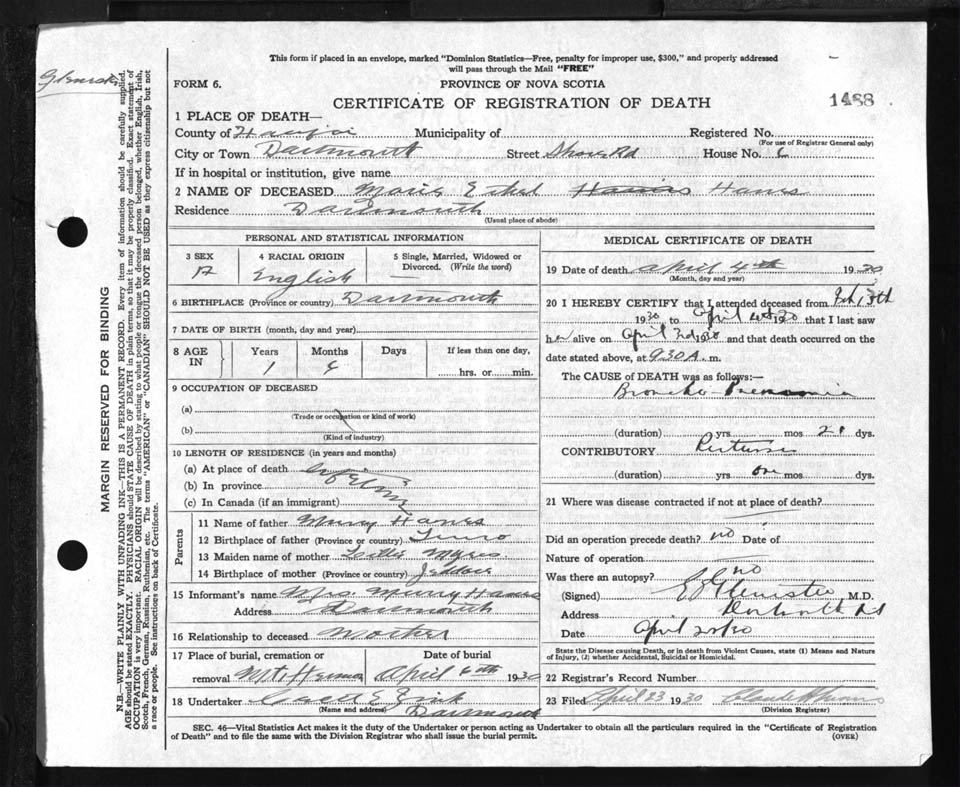 This form if placed in an envelope, marked "Dominion Statistics—Free, penalty for improper use, $300," and properly addressed
will pass through the Mail "FREE"
FORM 6.
PROVINCE OF NOVA SCOTIA
CERTIFICATE OF REGISTRATION OF DEATH
1488
1 PLACE OF DEATH—
County of Municipality of Registered No.
(For use of Registrar General only)
City or Town Dartmouth Street Shore Rd House No. 6
If in hospital or institution, give name
2 NAME OF DECEASED Marie Ethel Hanes
Residence Dartmouth
(Usual place of abode)
PERSONAL AND STATISTICAL INFORMATION
3 SEX
4 RACIAL ORIGIN
English
5 Single, Married, Widowed or
Divorced. (Write the word)
6 BIRTHPLACE (Province or country) Dartmouth
7 DATE OF BIRTH (month, day and year)
8 AGE IN
Years 1
Months 6
Days
If less than one day,
hrs. or min.
9 OCCUPATION OF DECEASED
(a)
(Trade or occupation or kind of work)
(b)
(Kind of industry)
10 LENGTH OF RESIDENCE (in years and months)
(a) At place of death
(b) In province
(c) In Canada (if an immigrant)
Parents
11 Name of father Hanes
12 Birthplace of father (Province or country) Truro
13 Maiden name of mother Myres
14 Birthplace of mother (Province or country) Jeddore
15 Informant's name Mrs. Hanes
Address Dartmouth
16 Relationship to deceased Mother
17 Place of burial, cremation or
removal Mt Hermon
Date of burial
April 6th 1930
18 Undertaker
(Name and address) Dartmouth
MEDICAL CERTIFICATE OF DEATH
19 Date of death April 4th 1930
(Month, day and year)
20 I HEREBY CERTIFY that I attended deceased from Feb 13th
1930 to April 1930 that I last saw
her alive on April 3rd 1930 and that death occurred on the
date stated above, at 9.30 A. m.
The CAUSE OF DEATH was as follows:—
Broncho-Pneumonia
(duration) yrs mos 21 dys.
CONTRIBUTORY Pertussis
(duration) yrs one mos dys.
21 Where was disease contracted if not at place of death?
Did an operation precede death? no Date of
Nature of operation
Was there an autopsy? no
(Signed) M.D.
Address
Date April
State the Disease causing Death, or in death from Violent Causes, state (1) Means and Nature
of Injury, (2) whether Accidental, Suicidal or Homicidal.
22 Registrar's Record Number
23 Filed April 23 1930
(Division Registrar)
SEC. 46—Vital Statistics Act makes it the duty of the Undertaker or person acting as Undertaker to obtain all the particulars required in the "Certificate of Registration
of Death" and to file the same with the Division Registrar who shall issue the burial permit.
(OVER)
MARGIN RESERVED FOR BINDING
N.B.—WRITE PLAINLY WITH UNFADING INK—THIS IS A PERMANENT RECORD. Every item of information should be carefully supplied.
AGE should be stated EXACTLY. PHYSICIANS should STATE CAUSE OF DEATH in plain terms, so that it may be properly classified. Exact statement of
OCCUPATION is very important. RACIAL ORIGIN will be described by stating to what people or tongue the deceased person belonged, whether English, Irish,
Scotch, French, German, Russian, Ruthenian, etc. The terms "AMERICAN" or "CANADIAN" SHOULD NOT BE USED as they express citizenship but not
a race or people. See instructions on back of Certificate.